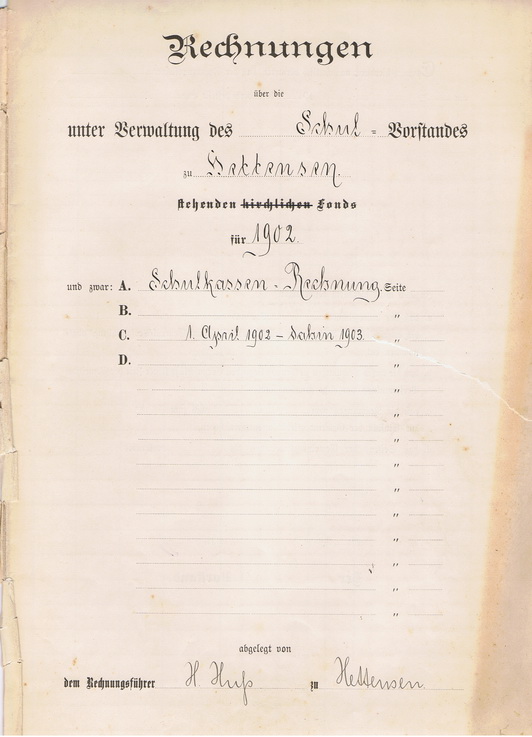 Rechnungen
über die
unter Verwaltung des Schul = Vorstandes
zu Hettensen.
stehenden kirchlichen Fonds
für 1902.
und zwar: A. Schulkassen - Rechnung. Seite
B. „
C. 1. April 1902 – dahin 1903. „
D. „
„
„
„
„
„
„
„
„
„
„
abgelegt von
dem Rechnungsführer H. Huß zu Hettensen.